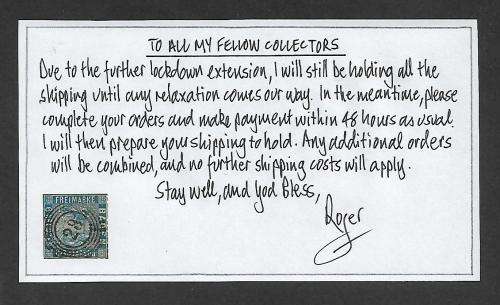 TO ALL MY FELLOW COLLECTORS
Due to the further lockdown extension, I will still be holding all the
shipping until any relaxation comes our way. In the meantime, please
complete your orders and make payment within 48 hours as usual.
I will then prepare your shipping to hold. Any additional orders
will be combined, and no further shipping costs will apply.
Stay well, and God Bless,
Roger
FREIMARKE
BADEN
28